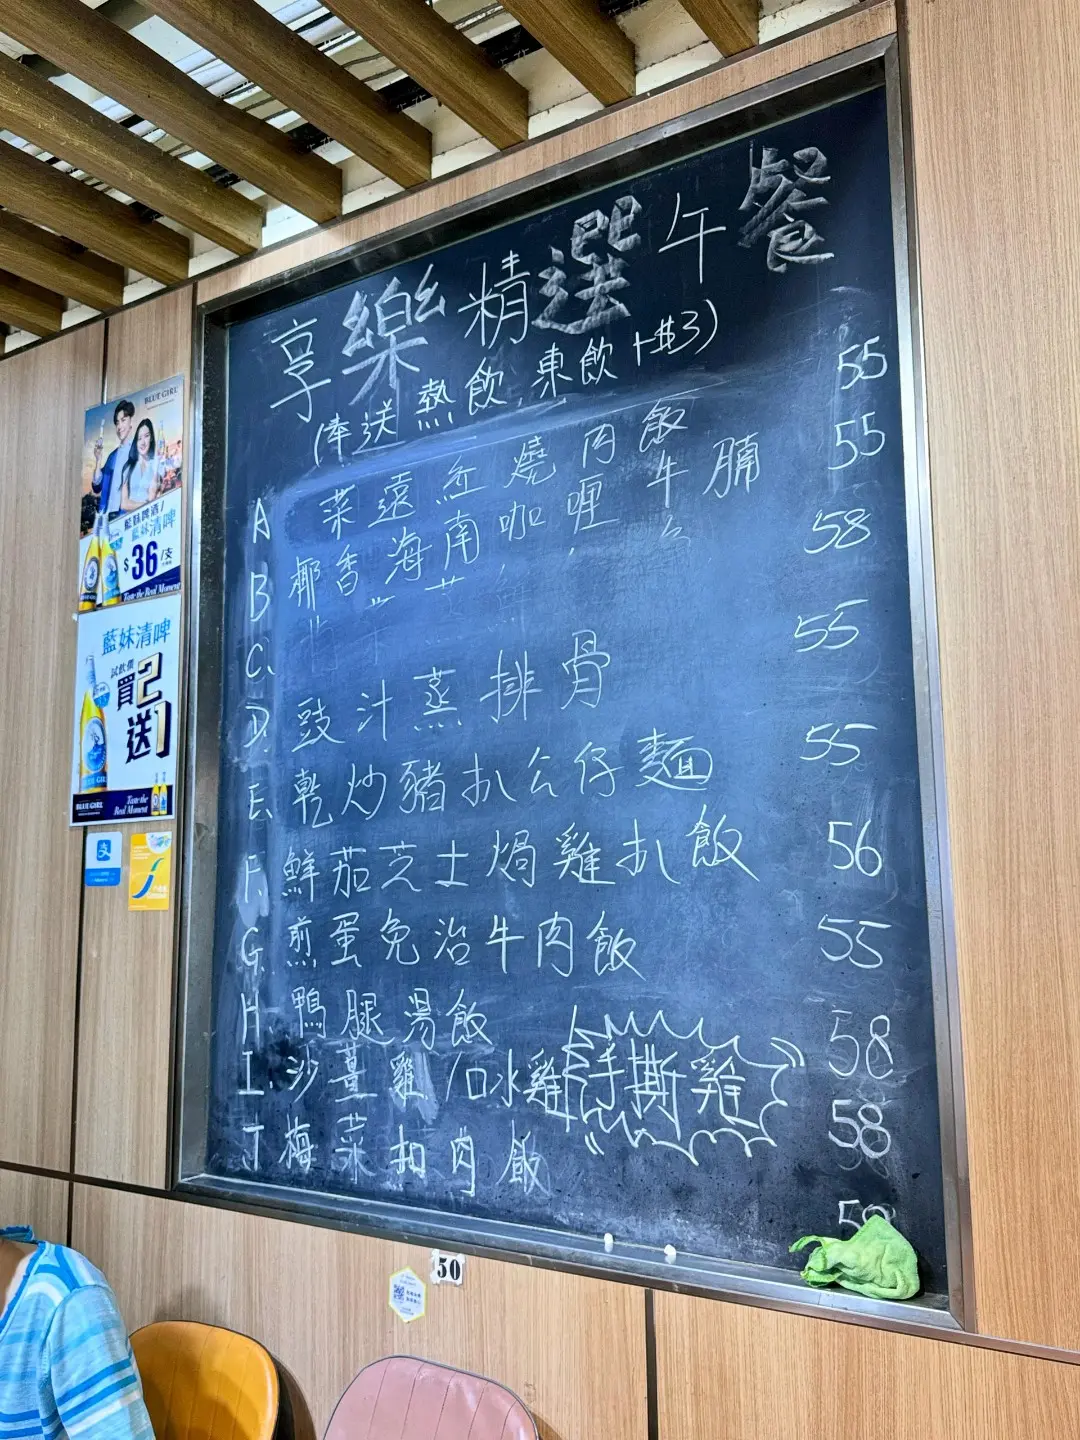 享樂精選午餐
(奉送熱飲，東飲+$3)
A 菜遠紅燒肉飯 55
B 椰香海南咖喱牛腩 55
C. 58
D. 豉汁蒸排骨 55
E. 乾炒豬扒公仔麵 55
F. 鮮茄芝士焗雞扒飯 56
G. 煎蛋免治牛肉飯 55
H. 鴨腿湯飯 58
I. 沙薑雞/口水雞 手撕雞 58
J 梅菜扣肉飯
BLUE GIRL
藍妹啤酒/
藍妹清啤
$36/支
Taste the Real Moment
藍妹清啤
試飲價
買2
送1
BLUE GIRL
Taste the
Real Moment
支
50